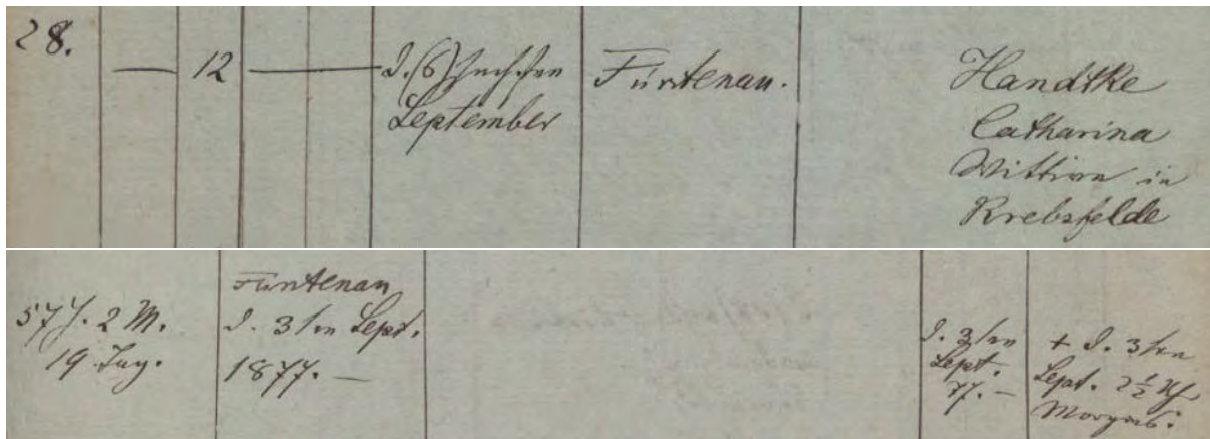 28.
— 12 — d. (6) sechsten
September
Fürstenau.
Handtke
Catharina
Wittwe in
Krebsfelde
57 J. 2 M.
19 Tag.
Fürstenau
d. 3ten Sept.
1877. —
d. 3ten
Sept.
77. —
+ d. 3ten
Sept. 2½ Uhr
Morgens.